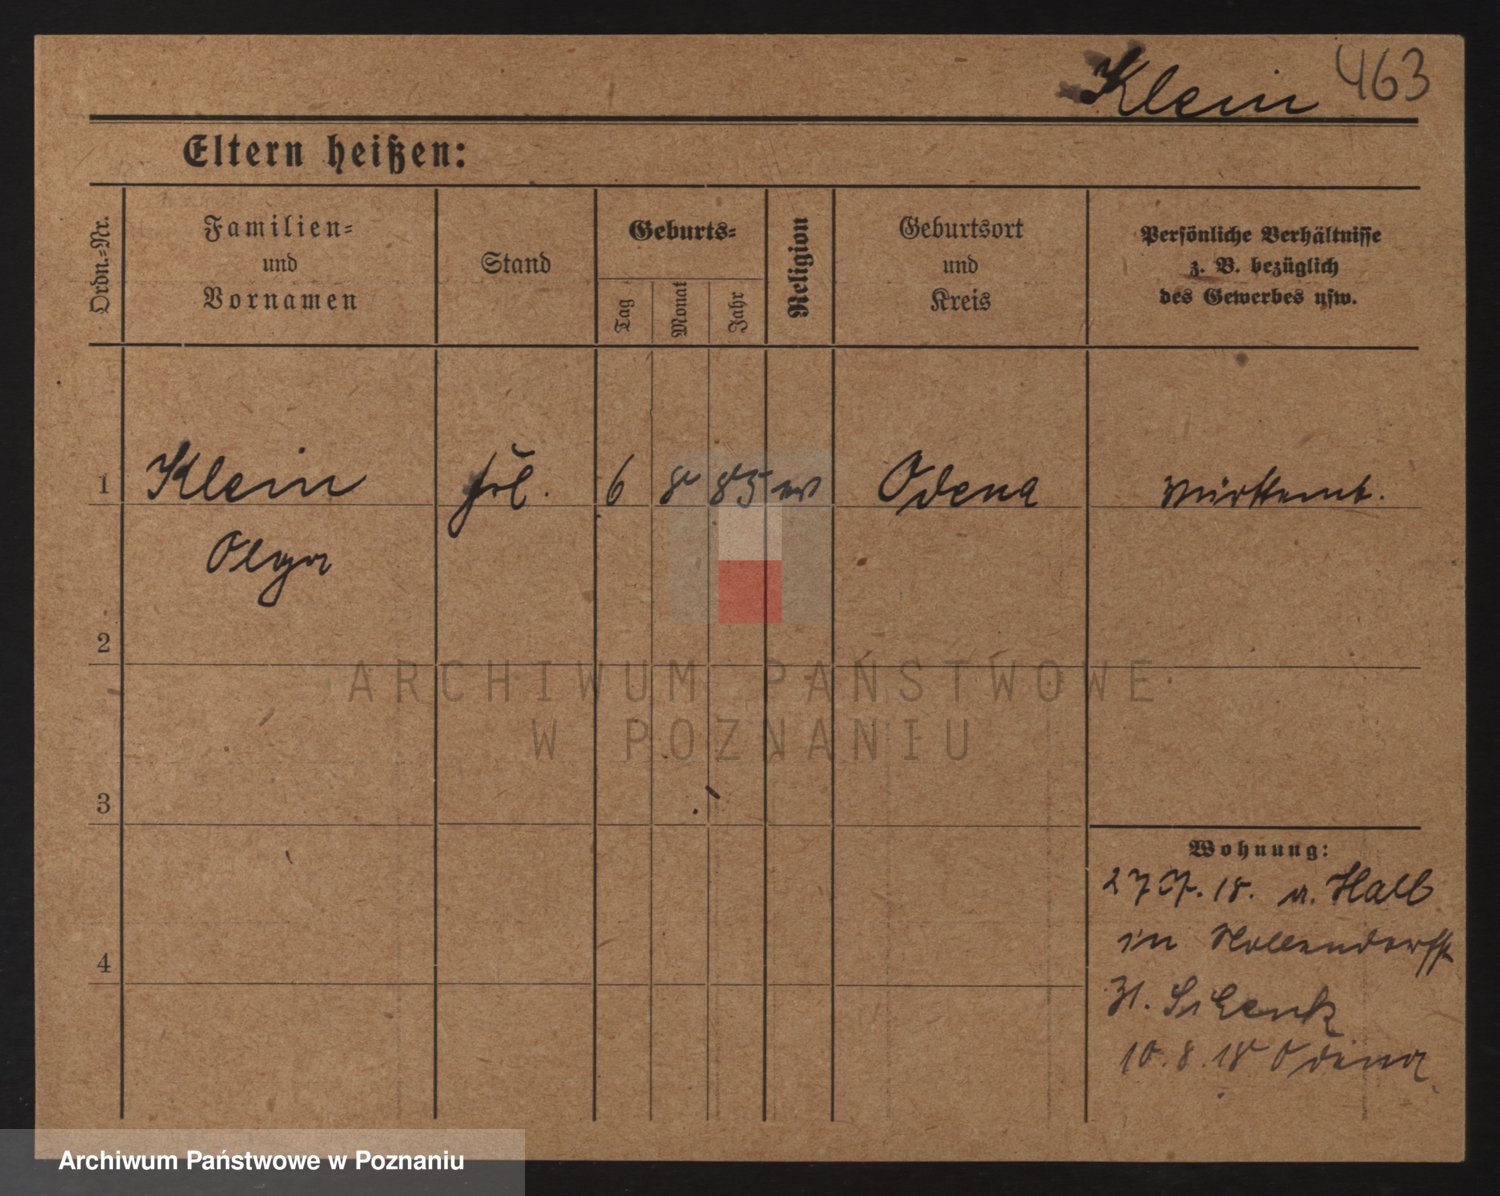 Klein 463
Eltern heißen:
Ordn.-Nr.
Familien-
und
Vornamen
Stand
Geburts-
Tag
Monat
Jahr
Religion
Geburtsort
und
Kreis
Persönliche Verhältnisse
z. B. bezüglich
des Gewerbes usw.
1 Klein frl. 6 8 85 ev Odena württemb.
Olga
2
ARCHIWUM PAŃSTWOWE
W POZNANIU
3
Wohnung:
27 7. 18. a. Hall
in
4
31. Schenk
10. 8. 18 Odena
Archiwum Państwowe w Poznaniu